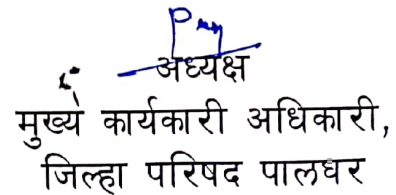 अध्यक्ष
मुख्य कार्यकारी अधिकारी,
जिल्हा परिषद पालघर